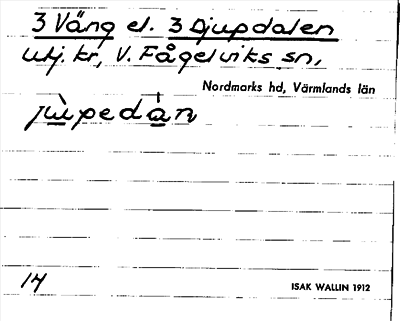 3 Väng el. 3 Djupdalen
utj. kr, V. Fågelviks sn,
Nordmarks hd, Värmlands län
14
ISAK WALLIN 1912